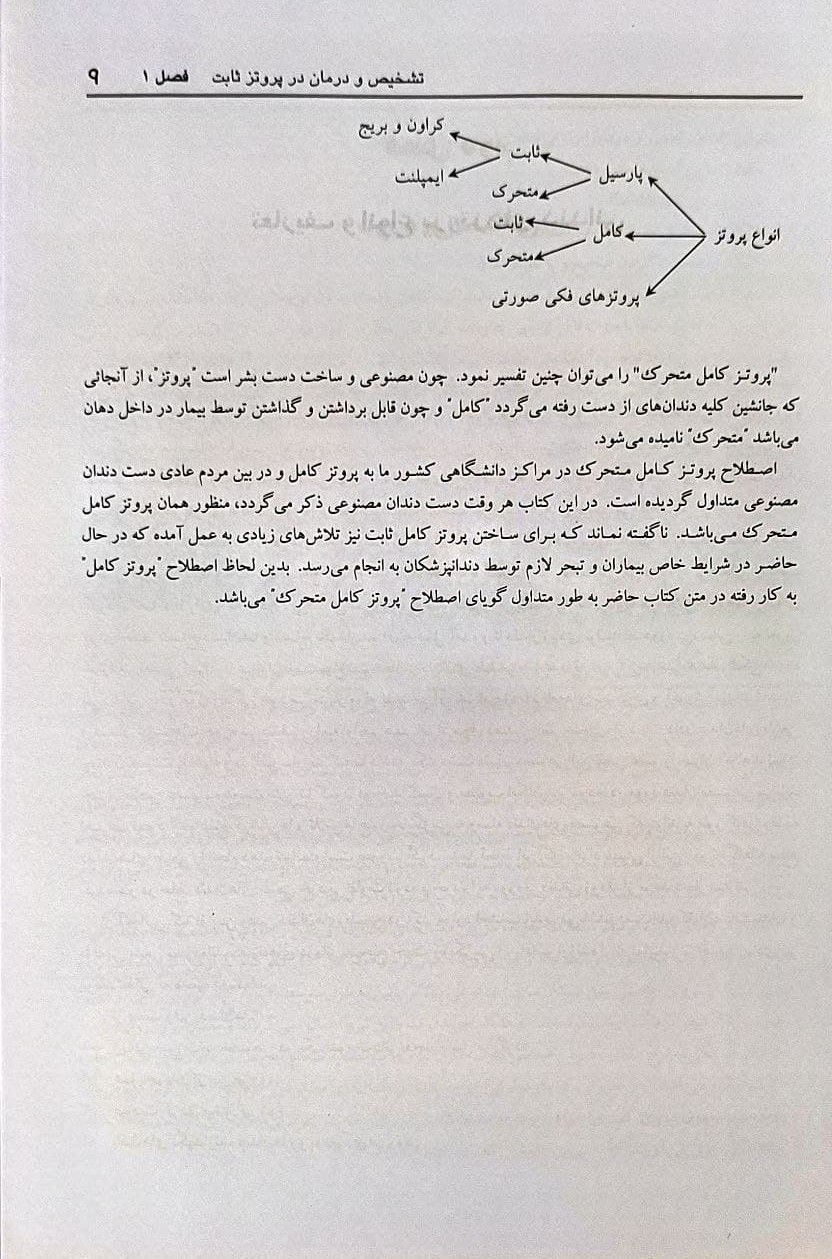 تشخیص و درمان در پروتز ثابت فصل ۱ ۹
کراون و بریج
ثابت
ایمپلنت
پارسیل
متحرک
ثابت
انواع پروتز
کامل
متحرک
پروتزهای فکی صورتی
"پروتز کامل متحرک" را می‌توان چنین تفسیر نمود. چون مصنوعی و ساخت دست بشر است "پروتز"، از آنجائی
که جانشین کلیه دندان‌های از دست رفته می‌گردد "کامل" و چون قابل برداشتن و گذاشتن توسط بیمار در داخل دهان
می‌باشد "متحرک" نامیده می‌شود.
اصطلاح پروتز کامل متحرک در مراکز دانشگاهی کشور ما به پروتز کامل و در بین مردم عادی دست دندان
مصنوعی متداول گردیده است. در این کتاب هر وقت دست دندان مصنوعی ذکر می‌گردد، منظور همان پروتز کامل
متحرک می‌باشد. ناگفته نماند که برای ساختن پروتز کامل ثابت نیز تلاش‌های زیادی به عمل آمده که در حال
حاضر در شرایط خاص بیماران و تبحر لازم توسط دندانپزشکان به انجام می‌رسد. بدین لحاظ اصطلاح "پروتز کامل"
به کار رفته در متن کتاب حاضر به طور متداول گویای اصطلاح "پروتز کامل متحرک" می‌باشد.